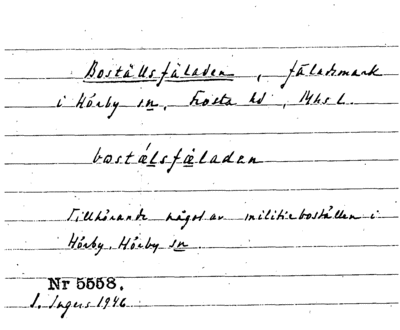 Boställsfäladen, fäladsmark
i Hörby sn, Frosta hd, Mhs l.
bostälsfäladen
Tillhörande något av militieboställen i
Hörby, Hörby sn
Nr 5558.
I. Ingers 1946